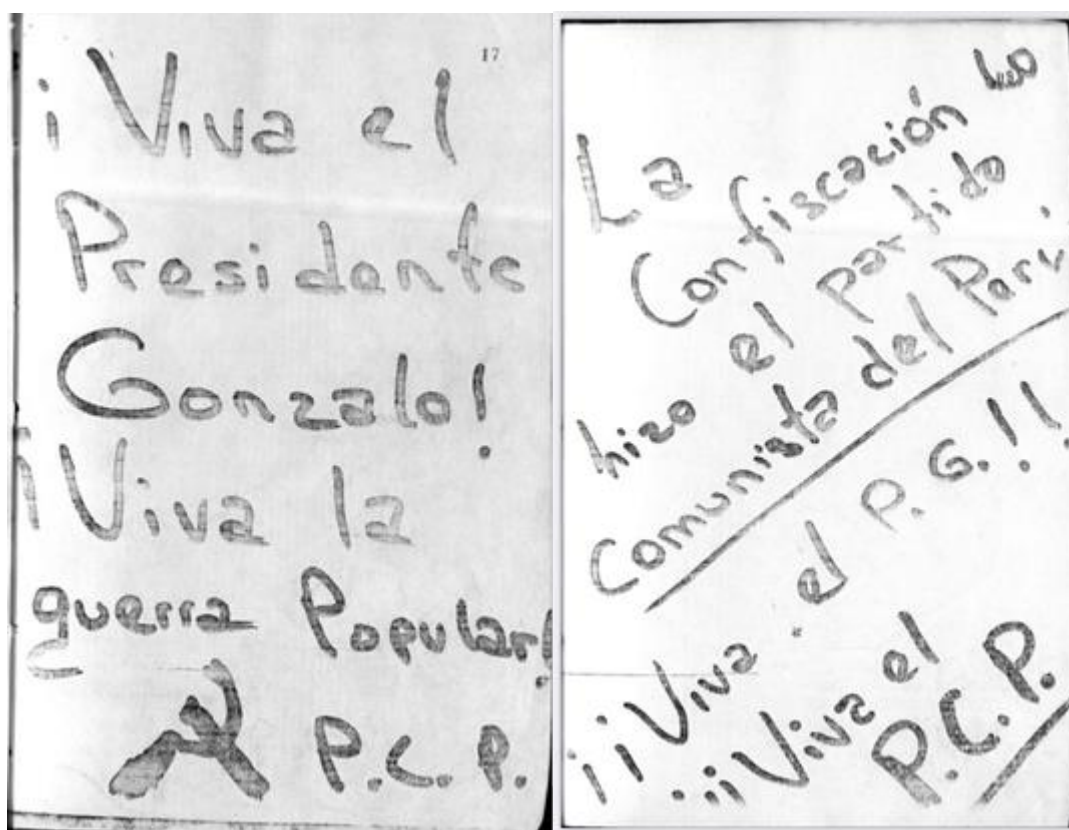 17
¡Viva el
Presidente
Gonzalo!
¡Viva la
guerra Popular!
P.C.P.
La
Confiscación lo
hizo el Partido
Comunista del Perú.
¡¡Viva el P.G.!!
¡¡¡Viva el
P.C.P.